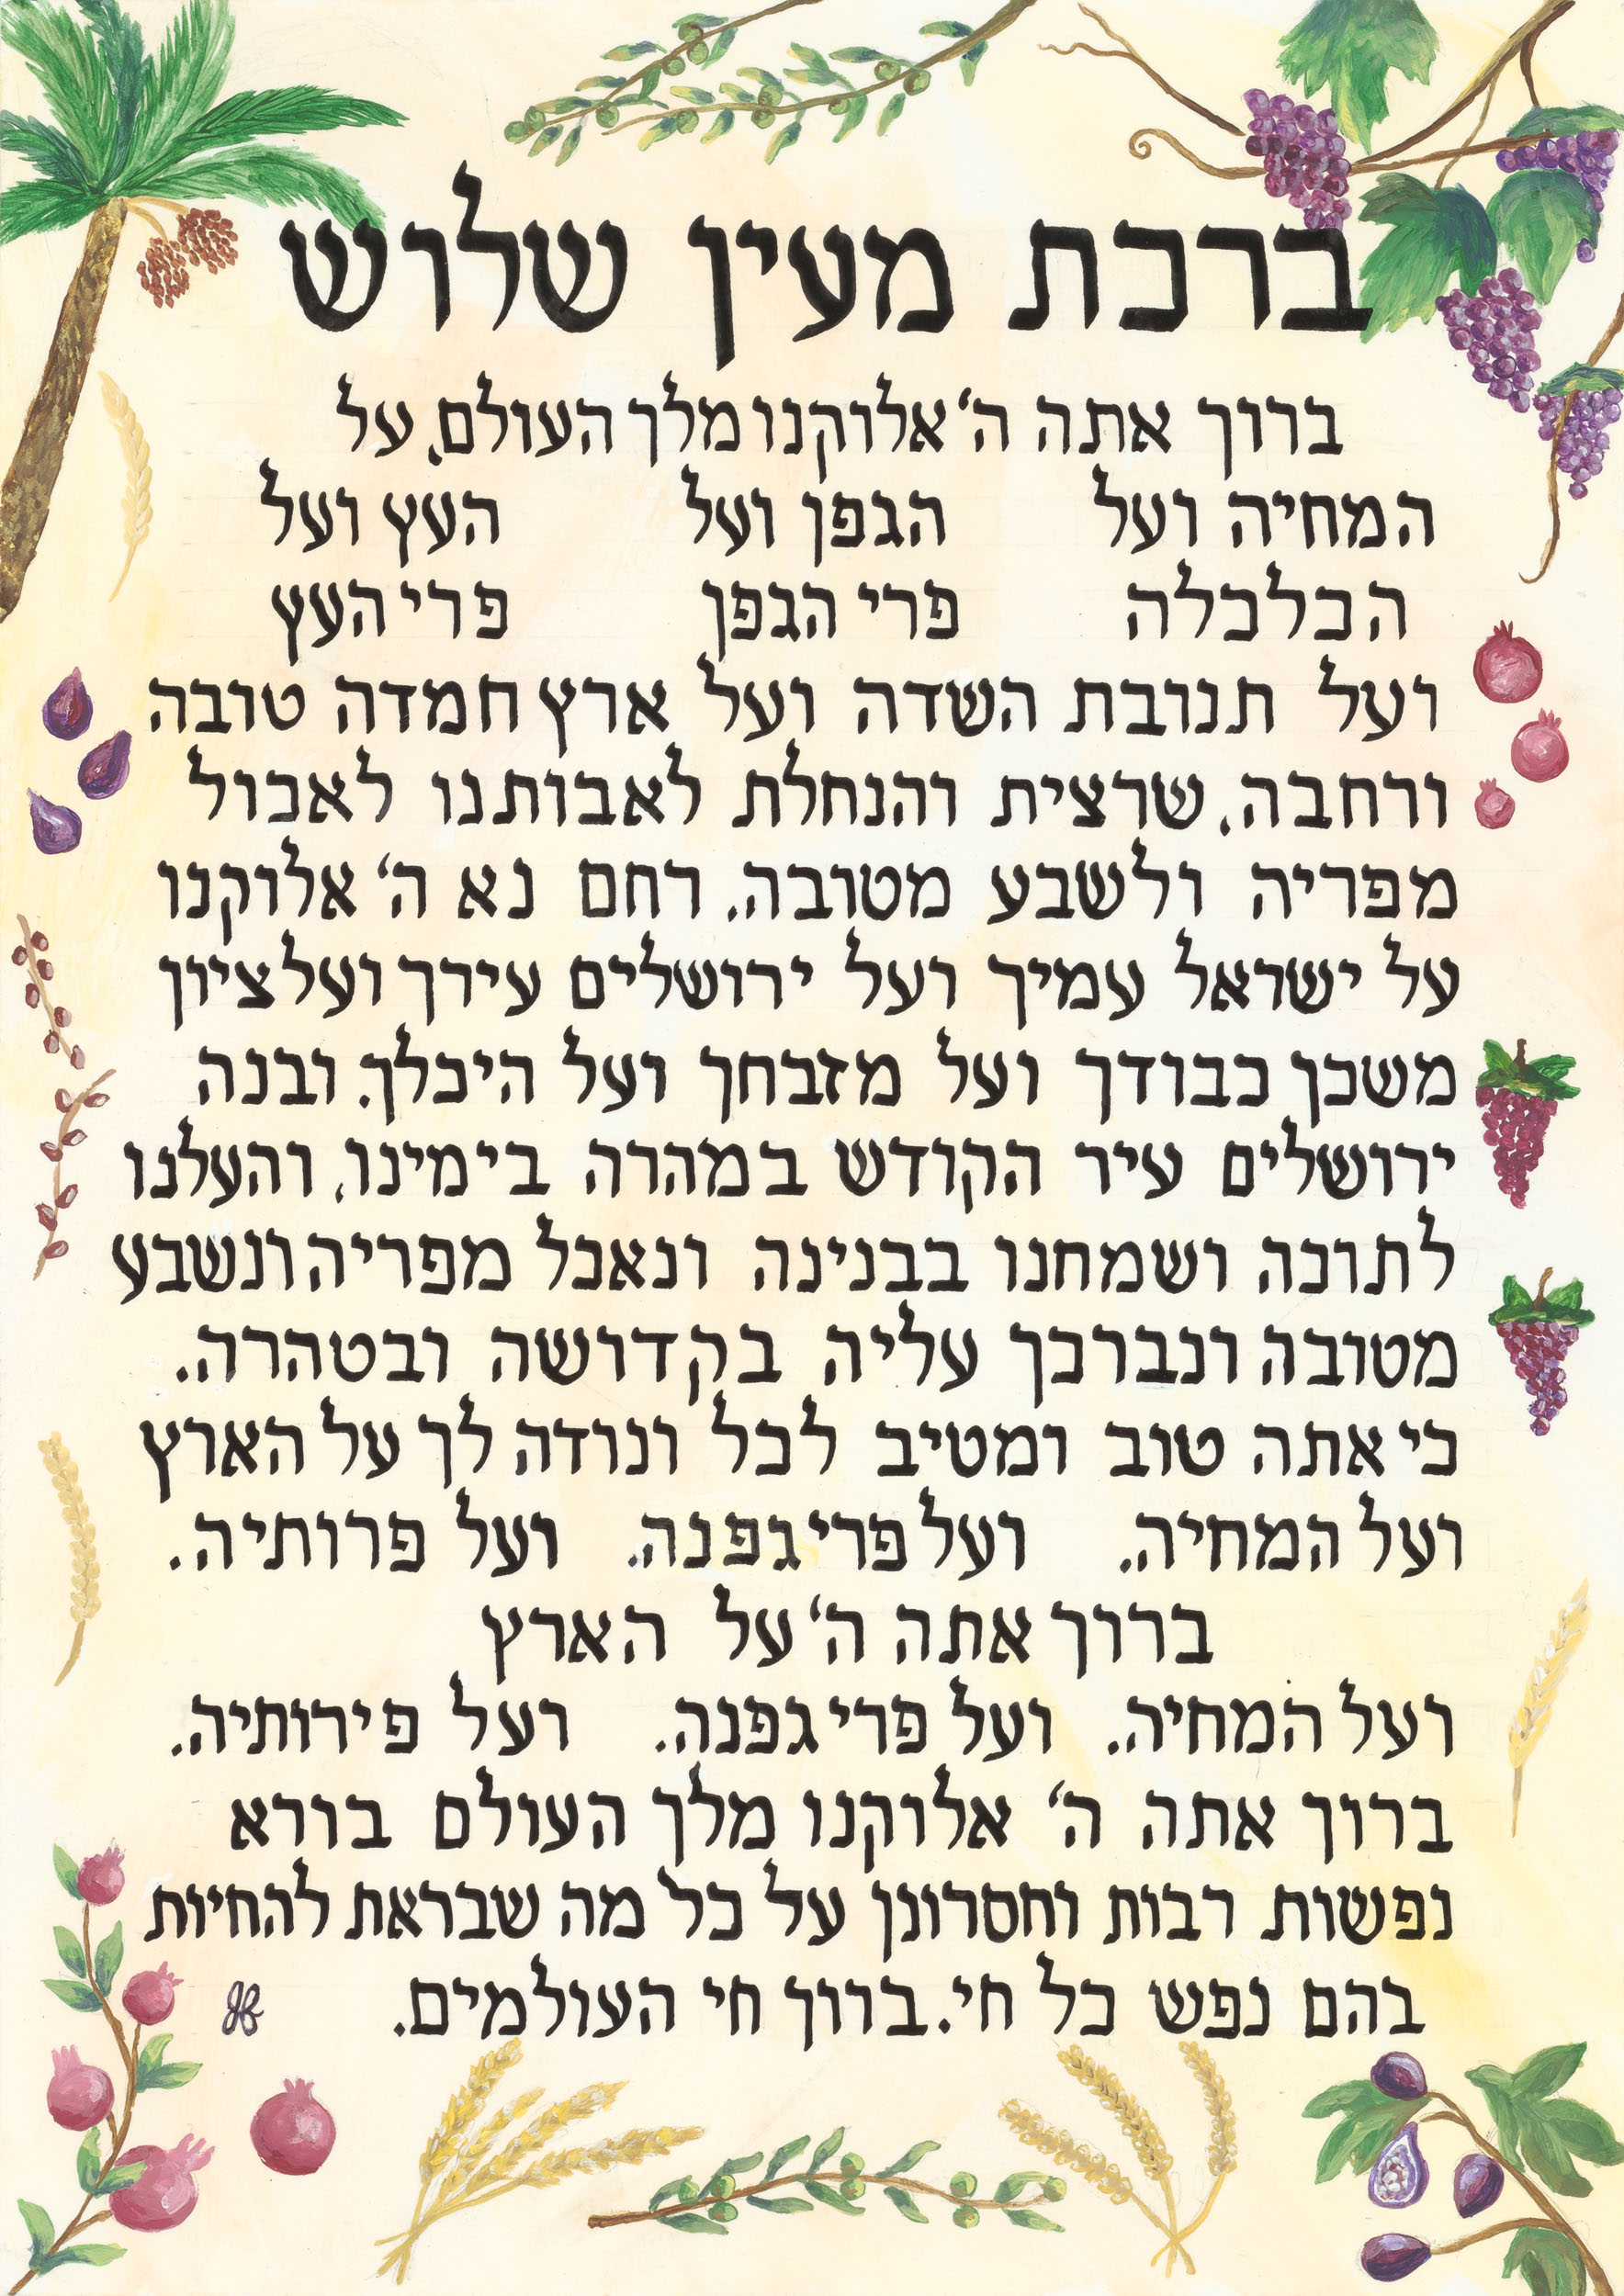 ברכת מעין שלוש
ברוך אתה ה' אלוקנו מלך העולם, על
המחיה ועל הגפן ועל העץ ועל
הכלכלה פרי הגפן פרי העץ
ועל תנובת השדה ועל ארץ חמדה טובה
ורחבה, שרצית והנחלת לאבותנו לאכול
מפריה ולשבע מטובה. רחם נא ה' אלוקנו
על ישראל עמיך ועל ירושלים עירך ועל ציון
משכן כבודך ועל מזבחך ועל היכלך. ובנה
ירושלים עיר הקודש במהרה בימינו, והעלנו
לתוכה ושמחנו בבנינה ונאכל מפריה ונשבע
מטובה ונברכך עליה בקדושה ובטהרה.
כי אתה טוב ומטיב לכל ונודה לך על הארץ
ועל המחיה. ועל פרי גפנה. ועל פרותיה.
ברוך אתה ה' על הארץ
ועל המחיה. ועל פרי גפנה. ועל פירותיה.
ברוך אתה ה' אלוקנו מלך העולם בורא
נפשות רבות וחסרונן על כל מה שבראת להחיות
בהם נפש כל חי. ברוך חי העולמים.